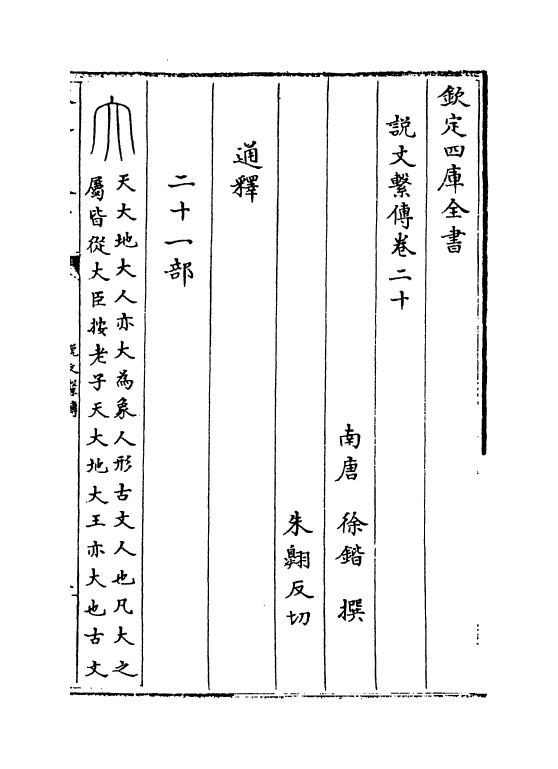 欽定四庫全書
説文繫傳卷二十
南唐 徐鍇 撰
朱翺反切
通釋
二十一部
大
天大地大人亦大為象人形古文人也凡大之
屬皆從大臣按老子天大地大王亦大也古文
説文繫傳